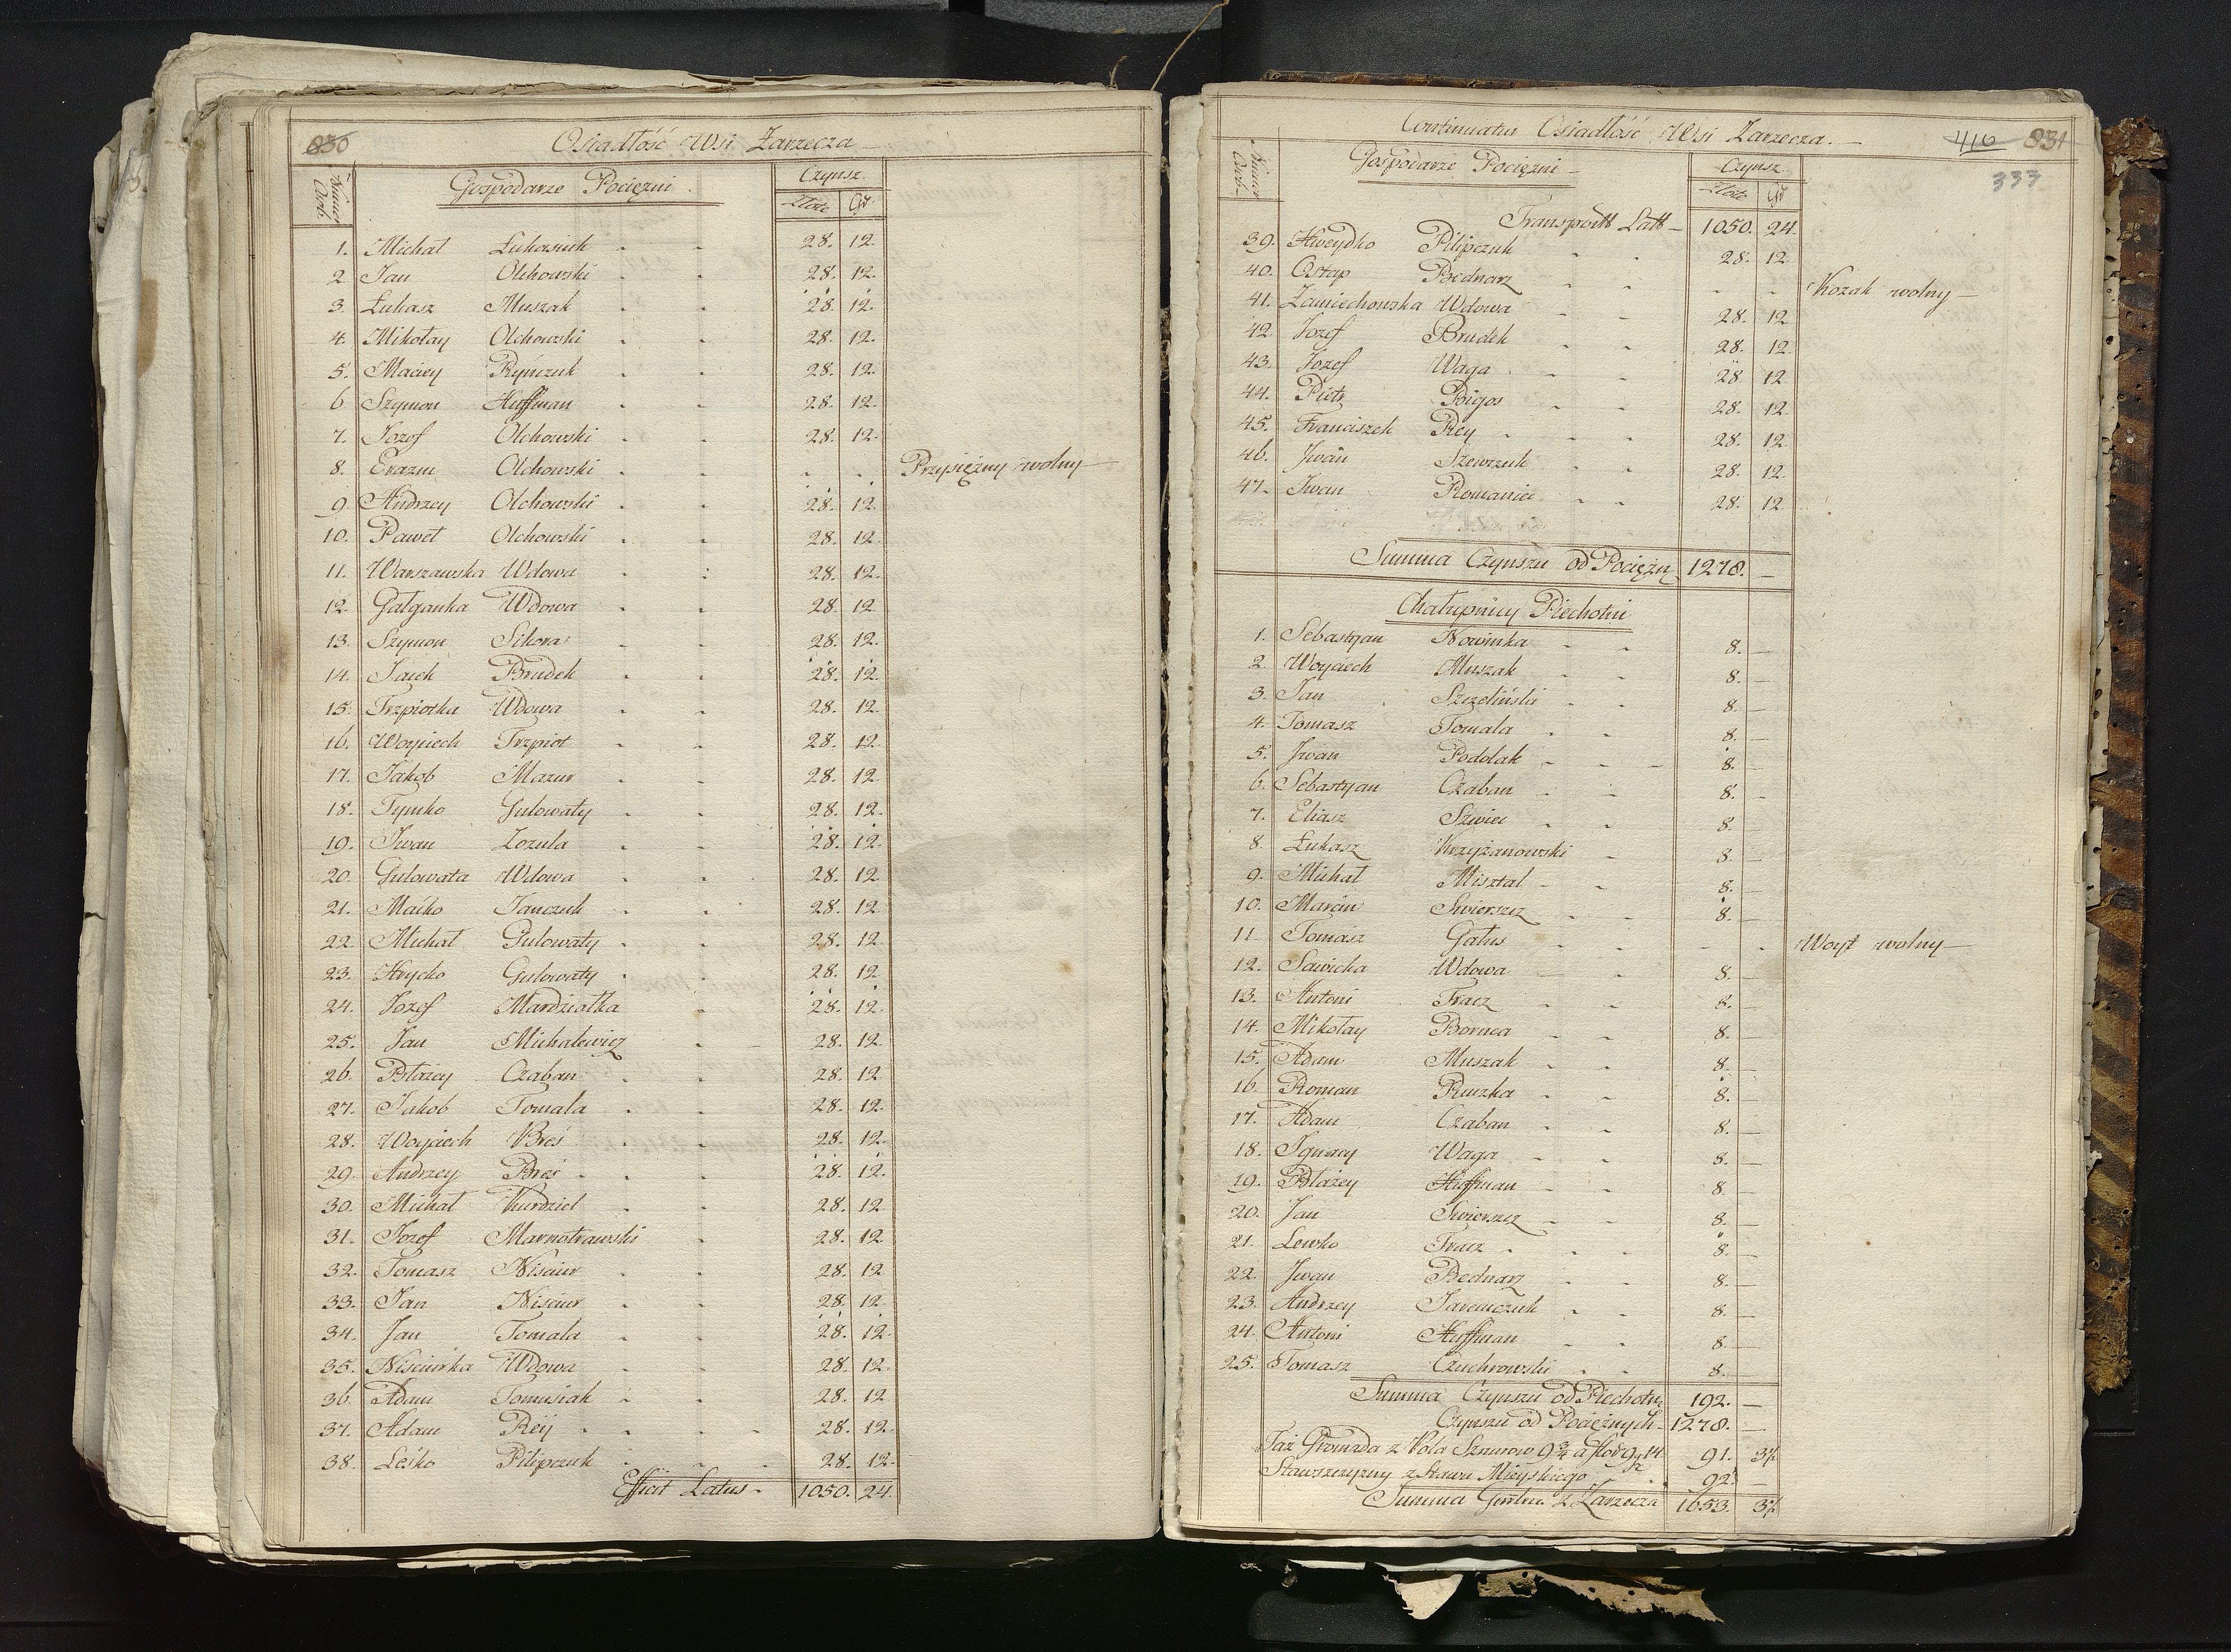 830
Osiadłość Wsi Zarzecza
Numer Chałup. Gospodarze Pociężni Czynsz
Złote Gr
1. Michał Lukasiuk 28. 12.
2 Jan Olchowski 28. 12.
3. Łukasz Muszak 28. 12.
4. Mikołay Olchowski 28. 12.
5. Maciey Ryńczuk 28. 12.
6 Szymon Huffman 28. 12.
7. Jozef Olchowski 28. 12.
8. Erazm Olchowski - - Przysiężny wolny
9. Andrzey Olchowski 28. 12.
10. Paweł Olchowski 28. 12.
11. Warszawska Wdowa 28. 12.
12. Gałganka Wdowa 28. 12
13. Szymon Sikora 28. 12.
14. Jacek Brudek 28. 12.
15. Trzpiotka Wdowa 28. 12.
16. Woyciech Trzpiot 28. 12
17. Jakob Mazur 28. 12
18. Tymko Gulowaty 28. 12.
19. Jwan Zozula 28. 12.
20. Gulowata Wdowa 28. 12
21. Maćko Janczuk 28. 12
22 Michał Gulowaty 28. 12
23. Hrycko Gulowaty 28. 12
24. Jozef Mardziołka 28. 12.
25. Jan Michalewicz 28. 12
26. Błazey Czaban 28. 12
27. Jakob Tomala 28. 12.
28. Woyciech Breś 28. 12.
29. Andrzey Breś 28. 12.
30. Michał Kurdziel 28. 12
31. Jozef Marnotrawski 28. 12
32. Tomasz Niściur 28. 12
33. Jan Niściur 28. 12
34. Jan Tomala 28. 12.
35. Niściurka Wdowa 28. 12.
36. Adam Tomusiak 28. 12
37. Adam Rey 28. 12.
38. Leśko Pilipczuk 28. 12.
Efficit Latus 1050. 24.
Continuatur Osiadłość Wsi Zarzecza.
416 831
333
Numer Chałup. Gospodarze Pociężni Czynsz
Złote Gr
Transportt Latt 1050. 24.
39. Hweydko Pilipczuk 28. 12
40. Ostap Bednarz - - Kozak wolny
41. Zawiechowska Wdowa 28. 12
42. Jozef Brudek 28. 12.
43. Jozef Waga 28 12
44. Piotr Bigos 28. 12.
45. Franciszek Rey 28. 12
46. Jwan Szewczuk 28. 12.
47. Jwan Romaniec 28. 12
Summa Czynszu od Pociężn 1278. —
Chałupnicy Piechotni
1. Sebastyan Nowinka 8. —
2. Woyciech Muszak 8. —
3. Jan Szczeliński 8. —
4. Tomasz Tomala 8. —
5. Jwan Podolak 8. —
6. Sebastyan Czaban 8. —
7. Eliasz Szwiec 8. —
8. Łukasz Krzyżanowski 8. —
9. Michał Misztal 8. —
10. Marcin Swierszcz 8. —
11 Tomasz Gałus - - Woyt wolny
12. Sawicka Wdowa 8. —
13. Antoni Tracz 8. —
14. Mikołay Bornca 8. —
15. Adam Muszak 8. —
16. Roman Ruczka 8. —
17. Adam Czaban 8. —
18. Jgnacy Waga 8. —
19. Błażey Hoffman 8. —
20. Jan Swierszcz 8. —
21. Lewko Tracz 8. —
22. Jwan Bednarz 8. —
23. Andrzey Jaremczuk 8. —
24. Antoni Huffman 8. —
25. Tomasz Czuchrowski 8. —
Summa Czynszu od Piechotn 192. —
Czynszu od Pociężnych 1278. —
Taż Gromada z Pola Sznurow 9 3/4 a 91.
Stawszczyzny z Stawu Mieyskiego 92.
Summa z Zarzecza 1653.